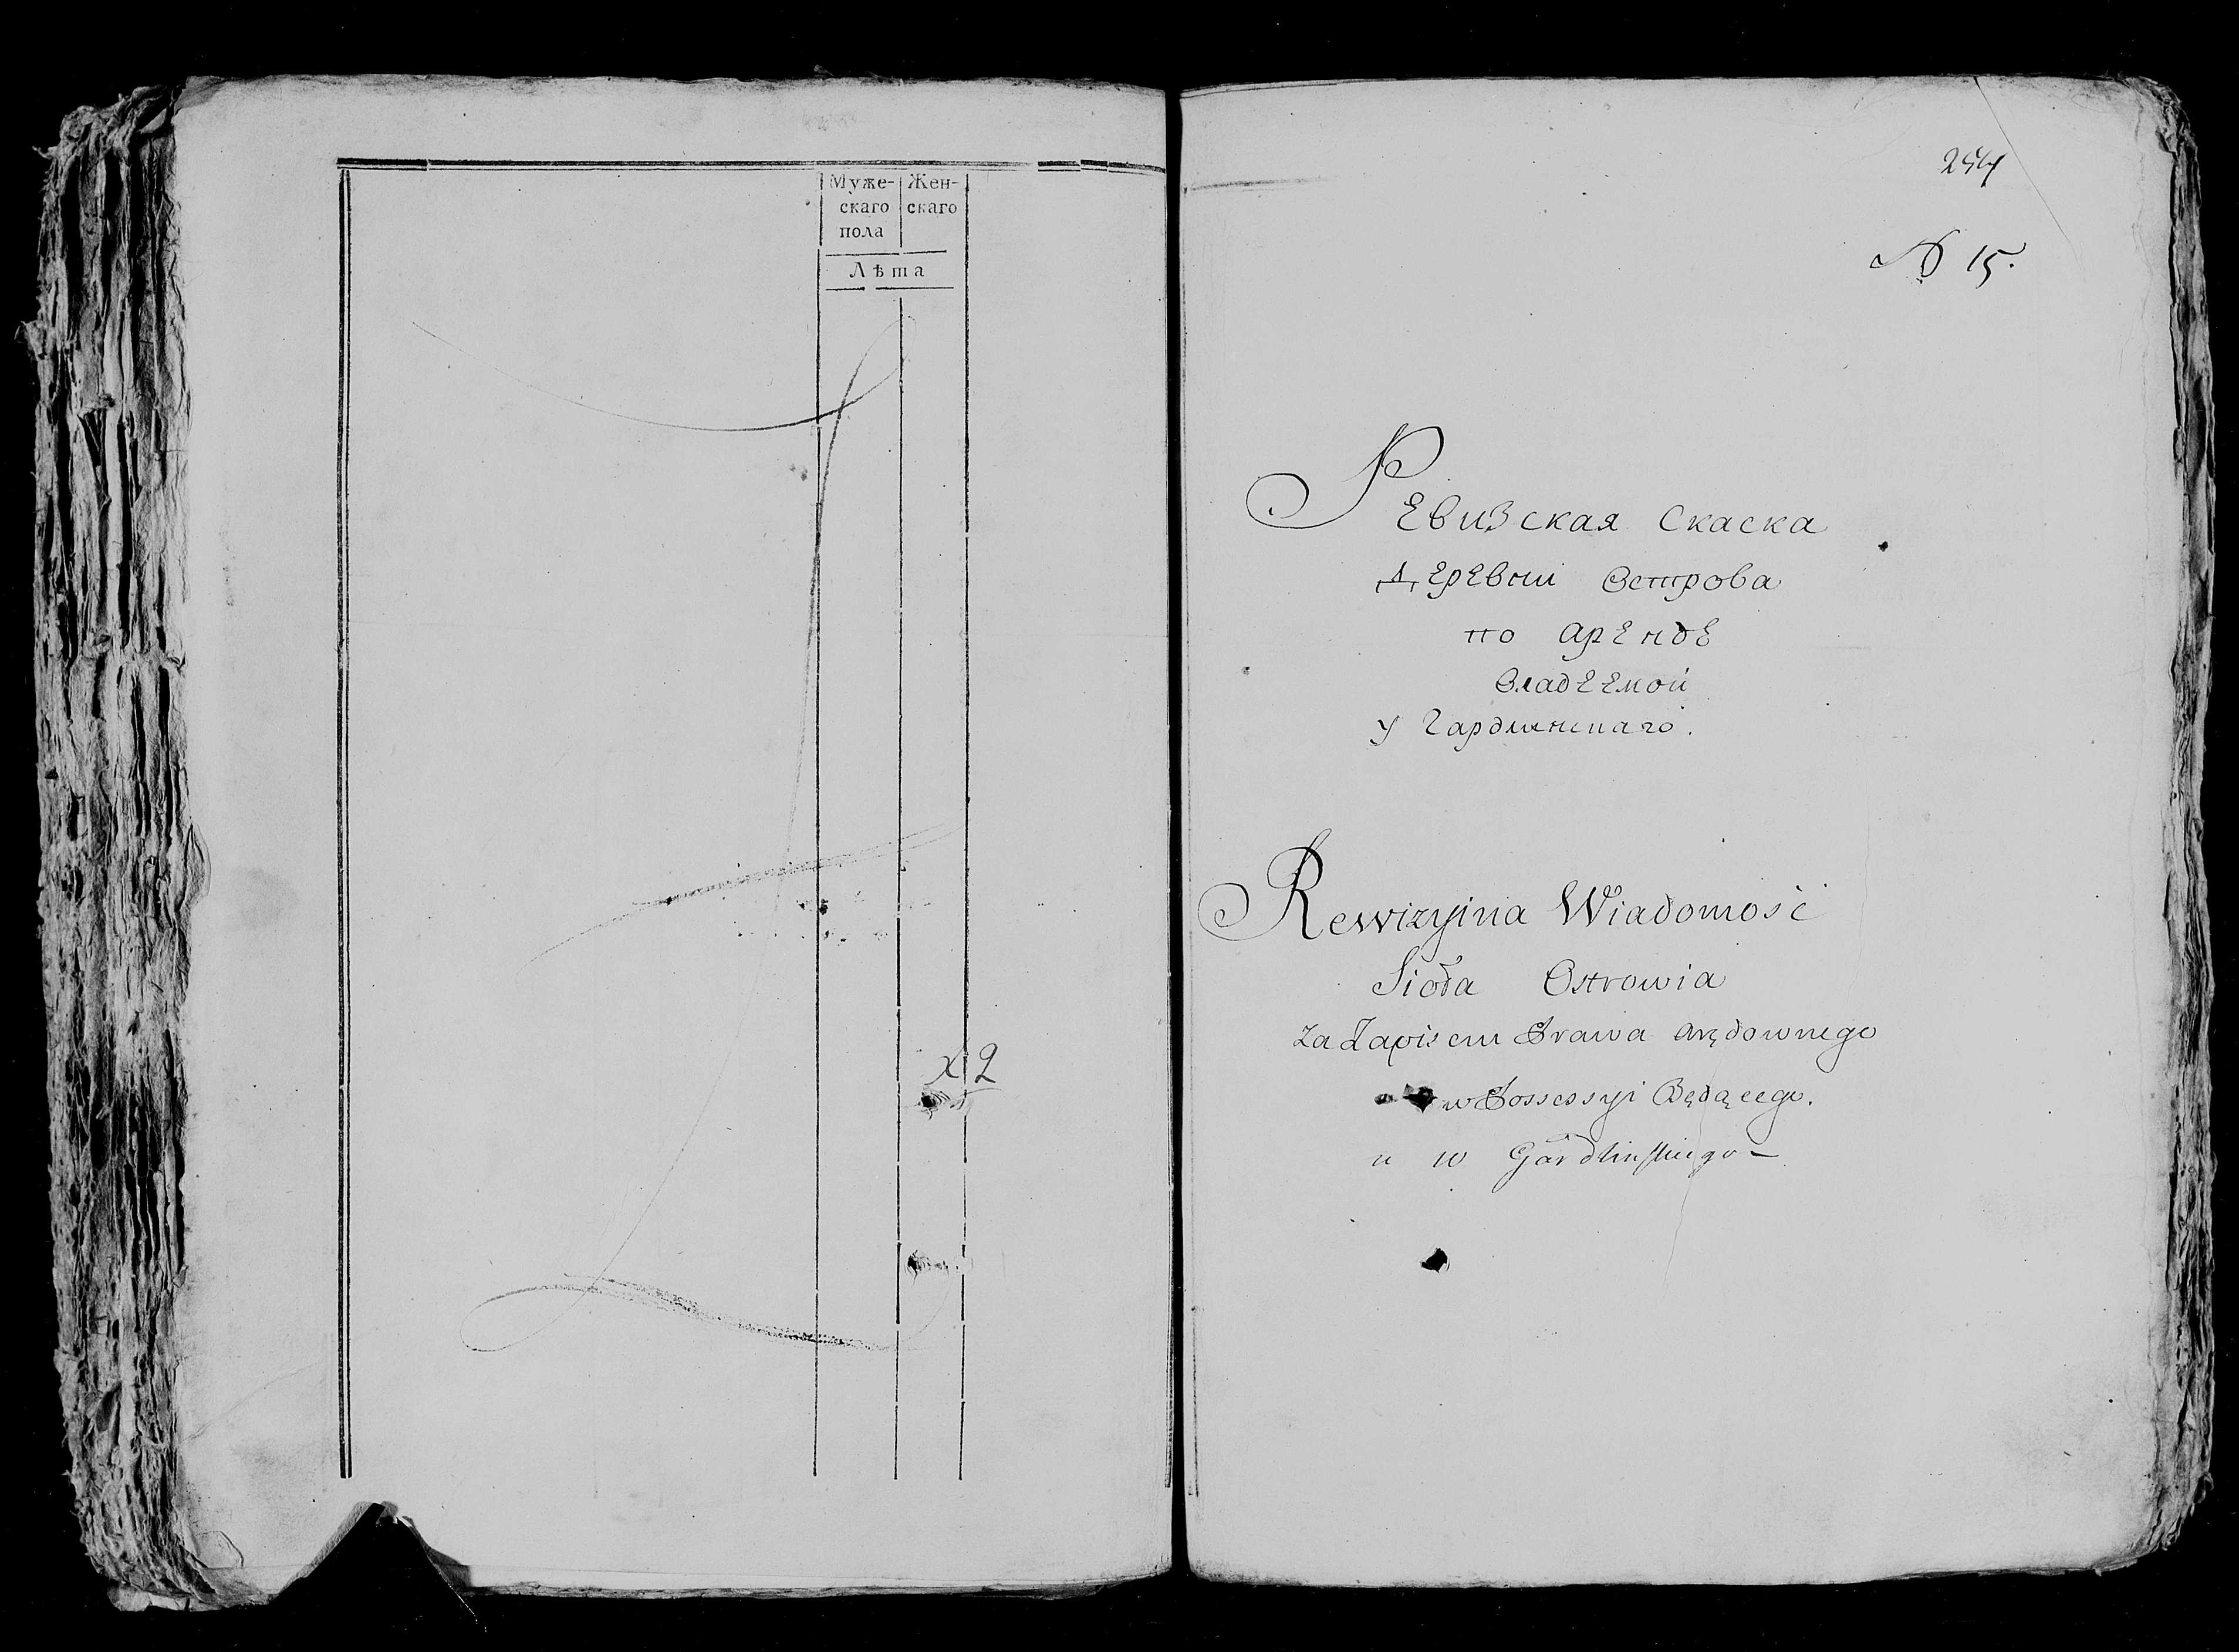 Муже- Жен-
скаго скаго
пола
Лѣта
254
№ 15.
Ревизская Скаска
Деревни Острова
по аренде
Владеемой
у Гардлинскаго.
Rewizyina Wiadomość
Sioła Ostrowia
za Zapisem Prawa arędownego
w Possessyi Będącego.
u w Gardlinskiego